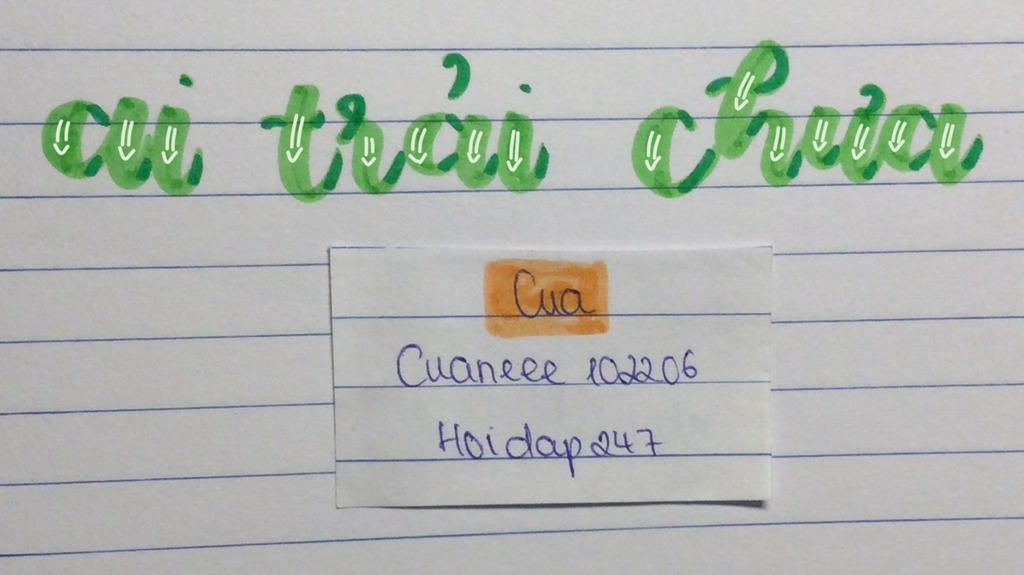 ai trải chưa
Cua
Cuaneee 102206
Hoidap247